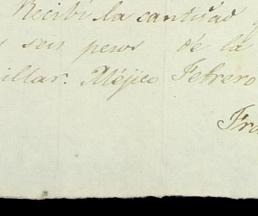 Recibí la cantidad
seis pesos de la
illar. Méjico Febrero
Fra